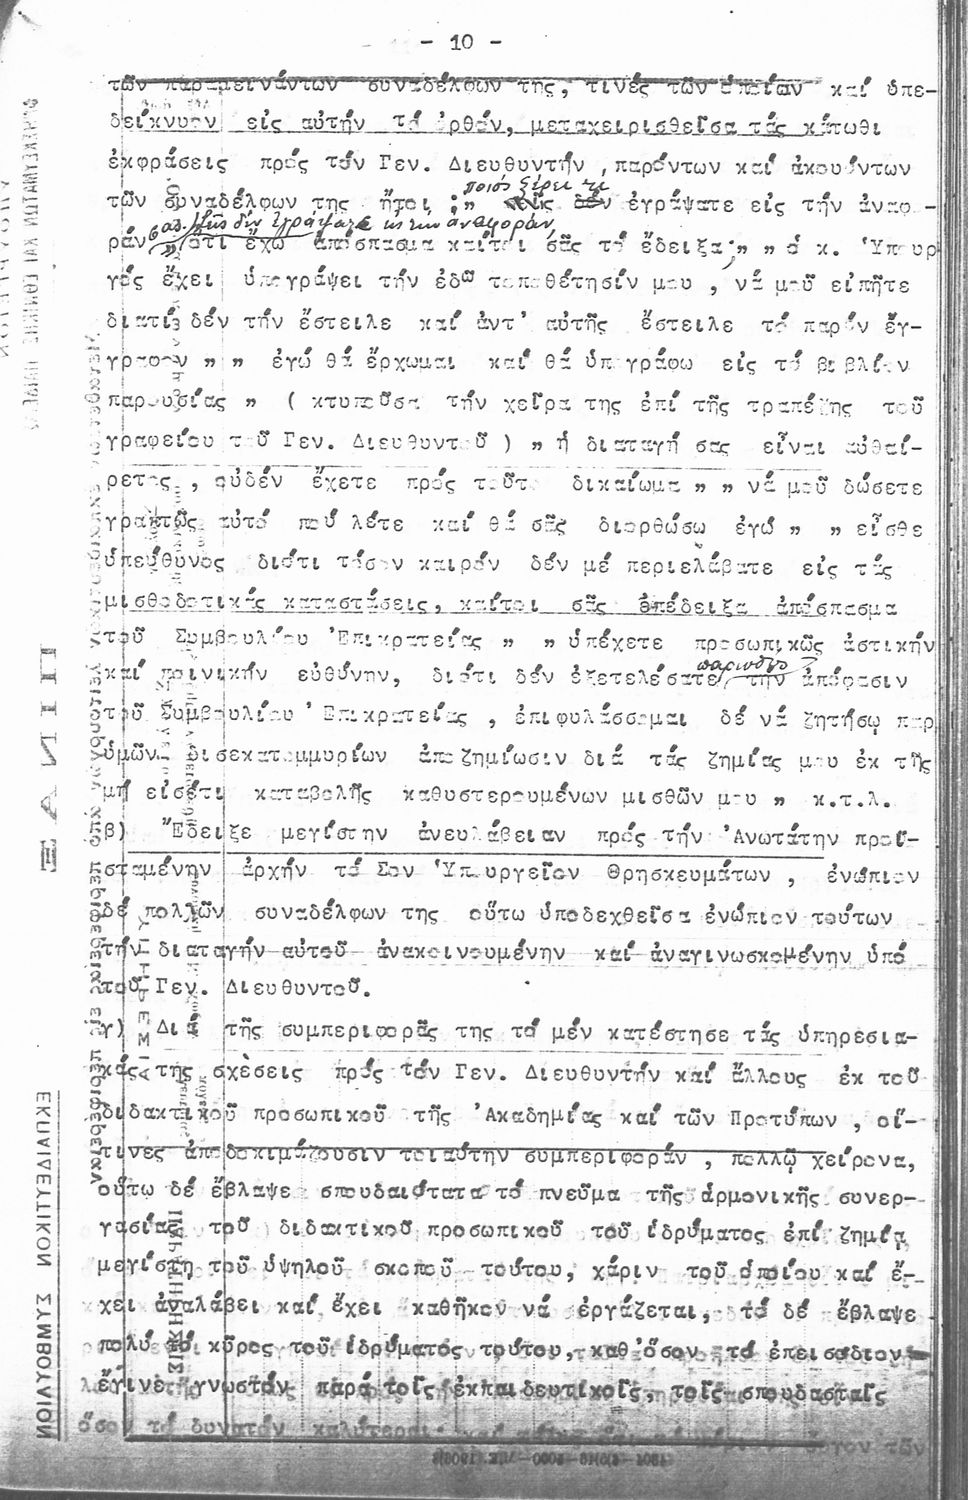 - 10 -
τῶν παραμεινάντων συναδέλφων της, τινές τῶν ὁποίων καί ὑπε-
δείκνυον εἰς αὐτήν τό ὀρθόν, μεταχειρισθεῖσα τάς κάτωθι
ἐκφράσεις πρός τόν Γεν. Διευθυντήν , παρόντων καί ἀκουόντων
ποιός ξέρει τι
τῶν συναδέλφων της ἤτοι ; " πῶς δέν ἐγράψατε εἰς τήν ἀναφ -
σας, πῶς δέν ἐγράψατε εἰς τήν ἀναφοράν
ράν " ὅτι ἔχω ἀπόσπασμα καίτοι σᾶς τό ἔδειξα;" " ὁ κ. Ὑπουρ
γός ἔχει ὑπογράψει τήν ἐδῶ τοποθέτησίν μου , νά μοῦ εἰπῆτε
διατί δέν τήν ἔστειλε καί ἀντ' αὐτῆς ἔστειλε τό παρόν ἔγ-
γραφον " " ἐγώ θά ἔρχωμαι καί θά ὑπογράφω εἰς τό βιβλίον
παρουσίας " ( κτυποῦσα τήν χεῖρα της ἐπί τῆς τραπέζης τοῦ
γραφείου τοῦ Γεν. Διευθυντοῦ ) " ἡ διαταγή σας εἶναι αὐθαί-
ρετος , οὐδέν ἔχετε πρός τοῦτο δικαίωμα " " νά μοῦ δώσετε
γραπτῶς αὐτό πού λέτε καί θά σᾶς διορθώσω ἐγώ " " εἶσθε
ὑπεύθυνος διότι τόσον καιρόν δέν μέ περιελάβατε εἰς τάς
μισθοδοτικάς καταστάσεις, καίτοι σᾶς ἐπέδειξα ἀπόσπασμα
τοῦ Συμβουλίου Ἐπικρατείας " " ὑπέχετε προσωπικῶς ἀστικήν
καί ποινικήν εὐθύνην, διότι δέν ἐξετελέσατε τήν ἀπόφασιν
τοῦ Συμβουλίου Ἐπικρατείας , ἐπιφυλάσσομαι δέ νά ζητήσῳ παρ
ὑμῶν δισεκατομμυρίων ἀποζημίωσιν διά τάς ζημίας μου ἐκ τῆς
μή εἰσέτι καταβολῆς καθυστερουμένων μισθῶν μου " κ.τ.λ.
β) Ἔδειξε μεγίστην ἀνευλάβειαν πρός τήν Ἀνωτάτην προϊ-
σταμένην ἀρχήν τό Σον Ὑπουργεῖον Θρησκευμάτων , ἐνώπιον
δέ πολλῶν συναδέλφων της οὕτω ὑποδεχθεῖσα ἐνώπιον τούτων
τήν διαταγήν αὐτοῦ ἀνακοινουμένην καί ἀναγινωσκομένην ὑπό
τοῦ Γεν. Διευθυντοῦ.
γ) Διά τῆς συμπεριφορᾶς της τό μέν κατέστησε τάς ὑπηρεσια-
κάς της σχὲσεις πρός τόν Γεν. Διευθυντήν καί ἄλλους ἐκ τοῦ
διδακτικοῦ προσωπικοῦ τῆς Ἀκαδημίας καί τῶν Προτύπων , οἵ-
τινες ἀποδοκιμάζουσιν τοιαύτην συμπεριφοράν , πολλῷ χείρονα,
οὕτω δέ ἔβλαψε σπουδαιότατα τό πνεῦμα τῆς ἁρμονικῆς συνερ-
γασίας τοῦ διδακτικοῦ προσωπικοῦ τοῦ ἱδρύματος ἐπί ζημίᾳ
μεγίστῃ τοῦ ὑψηλοῦ σκοποῦ τούτου, χάριν τοῦ ὁποίου καί ἔ-
χει ἀναλάβει καί ἔχει καθῆκον νά ἐργάζεται, τό δέ ἔβλαψε
πολύ τό κῦρος τοῦ ἱδρύματος τούτου, καθ ὅσον τό ἐπεισόδιον
ἔγινε γνωστόν παρά τοῖς ἐκπαιδευτικοῖς, τοῖς σπουδασταῖς
ὅσον τό δυνατόν καλύτεραι
ΕΚΠΑΙΔΕΥΤΙΚΟΝ ΣΥΜΒΟΥΛΙΟΝ